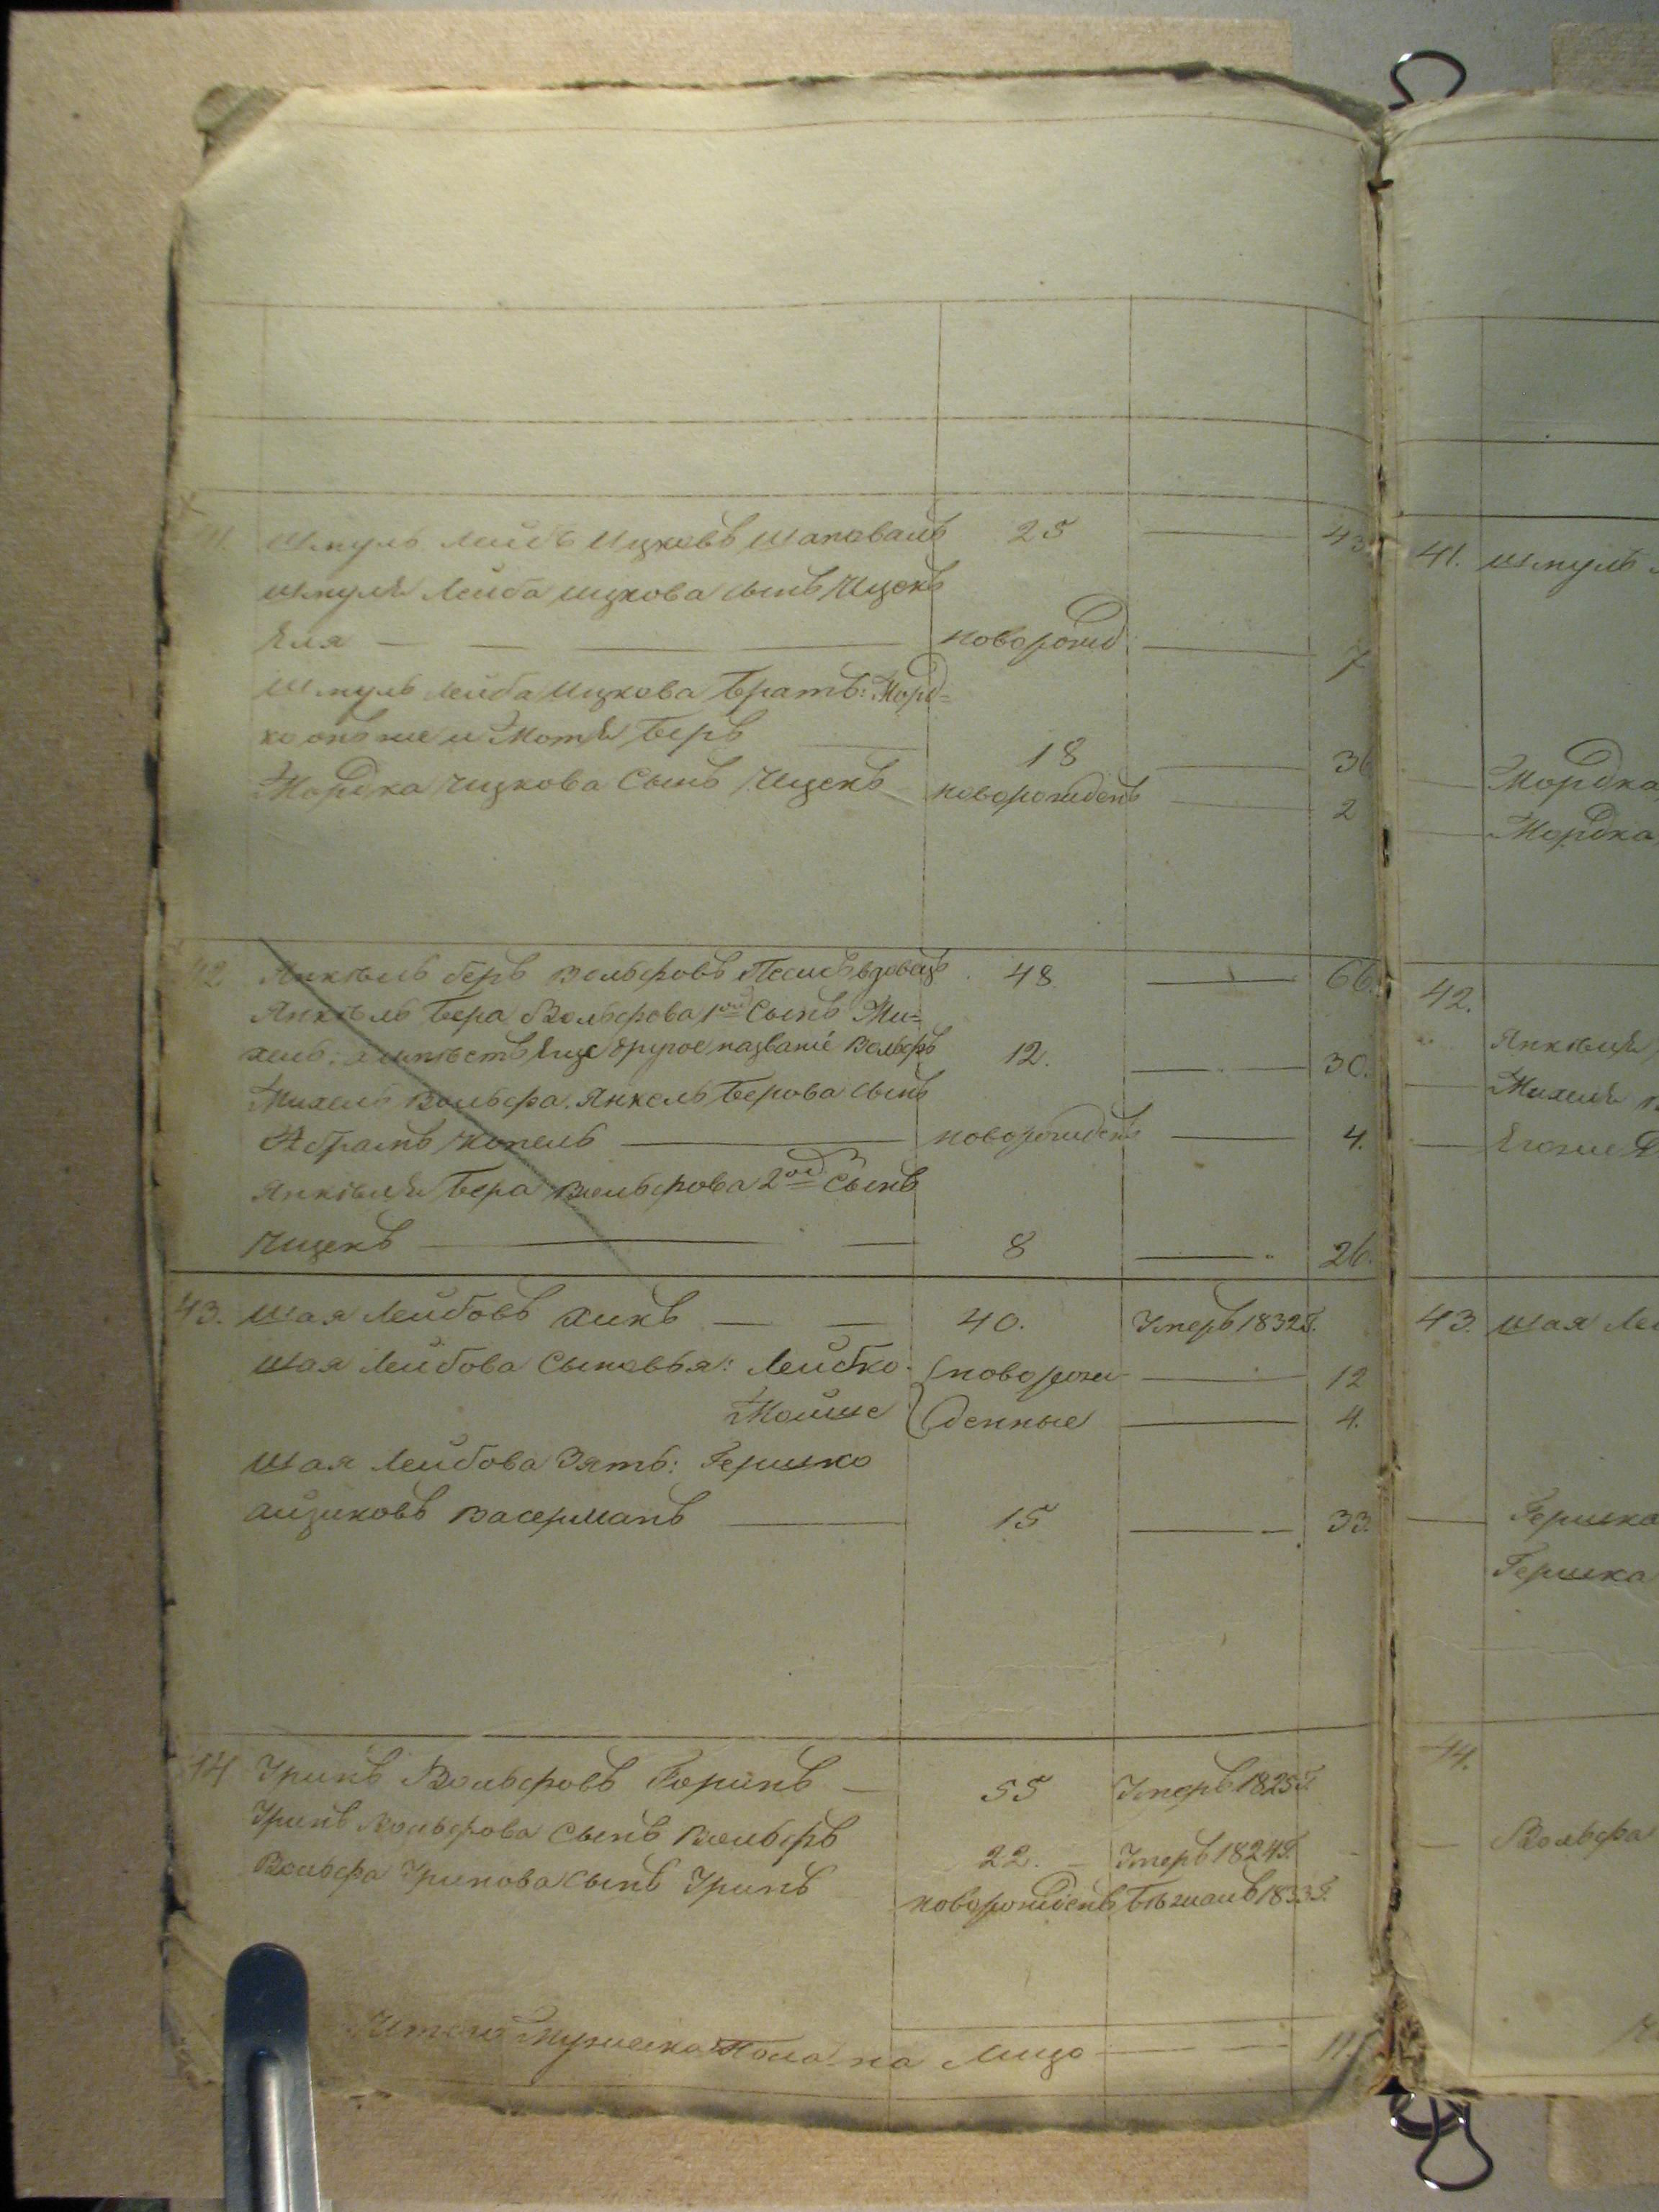 Шмуль Лейбъ Ицковъ Шаповалъ 25 — 43
Шмуля Лейба Ицкова сынъ Ицекъ
Еля — новорожд: — 7
Шмуль Лейба Ицкова братъ: Морд=
ко онъ же и Мотя Беръ — 18 — 36
Мордка Ицкова Сынъ Ицекъ новорожденъ — 2
42. Янкѣль беръ Вольфовъ вдовецъ 48 — 66.
Янкѣль Бера Вольфова 1ой Сынъ Ми=
хель; еще другое названіе Вольфъ 12. — 30.
Михель Вольфа Янкель Берова сынъ
Абрамъ Копель — новорожденъ — 4.
Янкѣля Бера Вольфова 2ой Сынъ
Ицекъ — 8 — 26.
43. Шая Лейбовъ — 40. Умеръ 1832г.
Шая Лейбова Сыновья: Лейбко новорож- — 12
Мойше денные — 4.
Шая Лейбова Зять: Гершко
Айзиковъ Васерманъ — 15 — 33.
44 Вольфовъ — 55 Умеръ 1825г.
Вольфова Сынъ Вольфъ 22. — Умеръ 1824г.
Вольфа сынъ новорожденъ Бѣжалъ 1833г.
Итого Мужеска Пола на Лицо — 11
41. Шмуль
Мордка
Мордка
42.
Янкѣля
Михеля
43. Шая Ле
Гершка
Гершка
44.
Вольфа